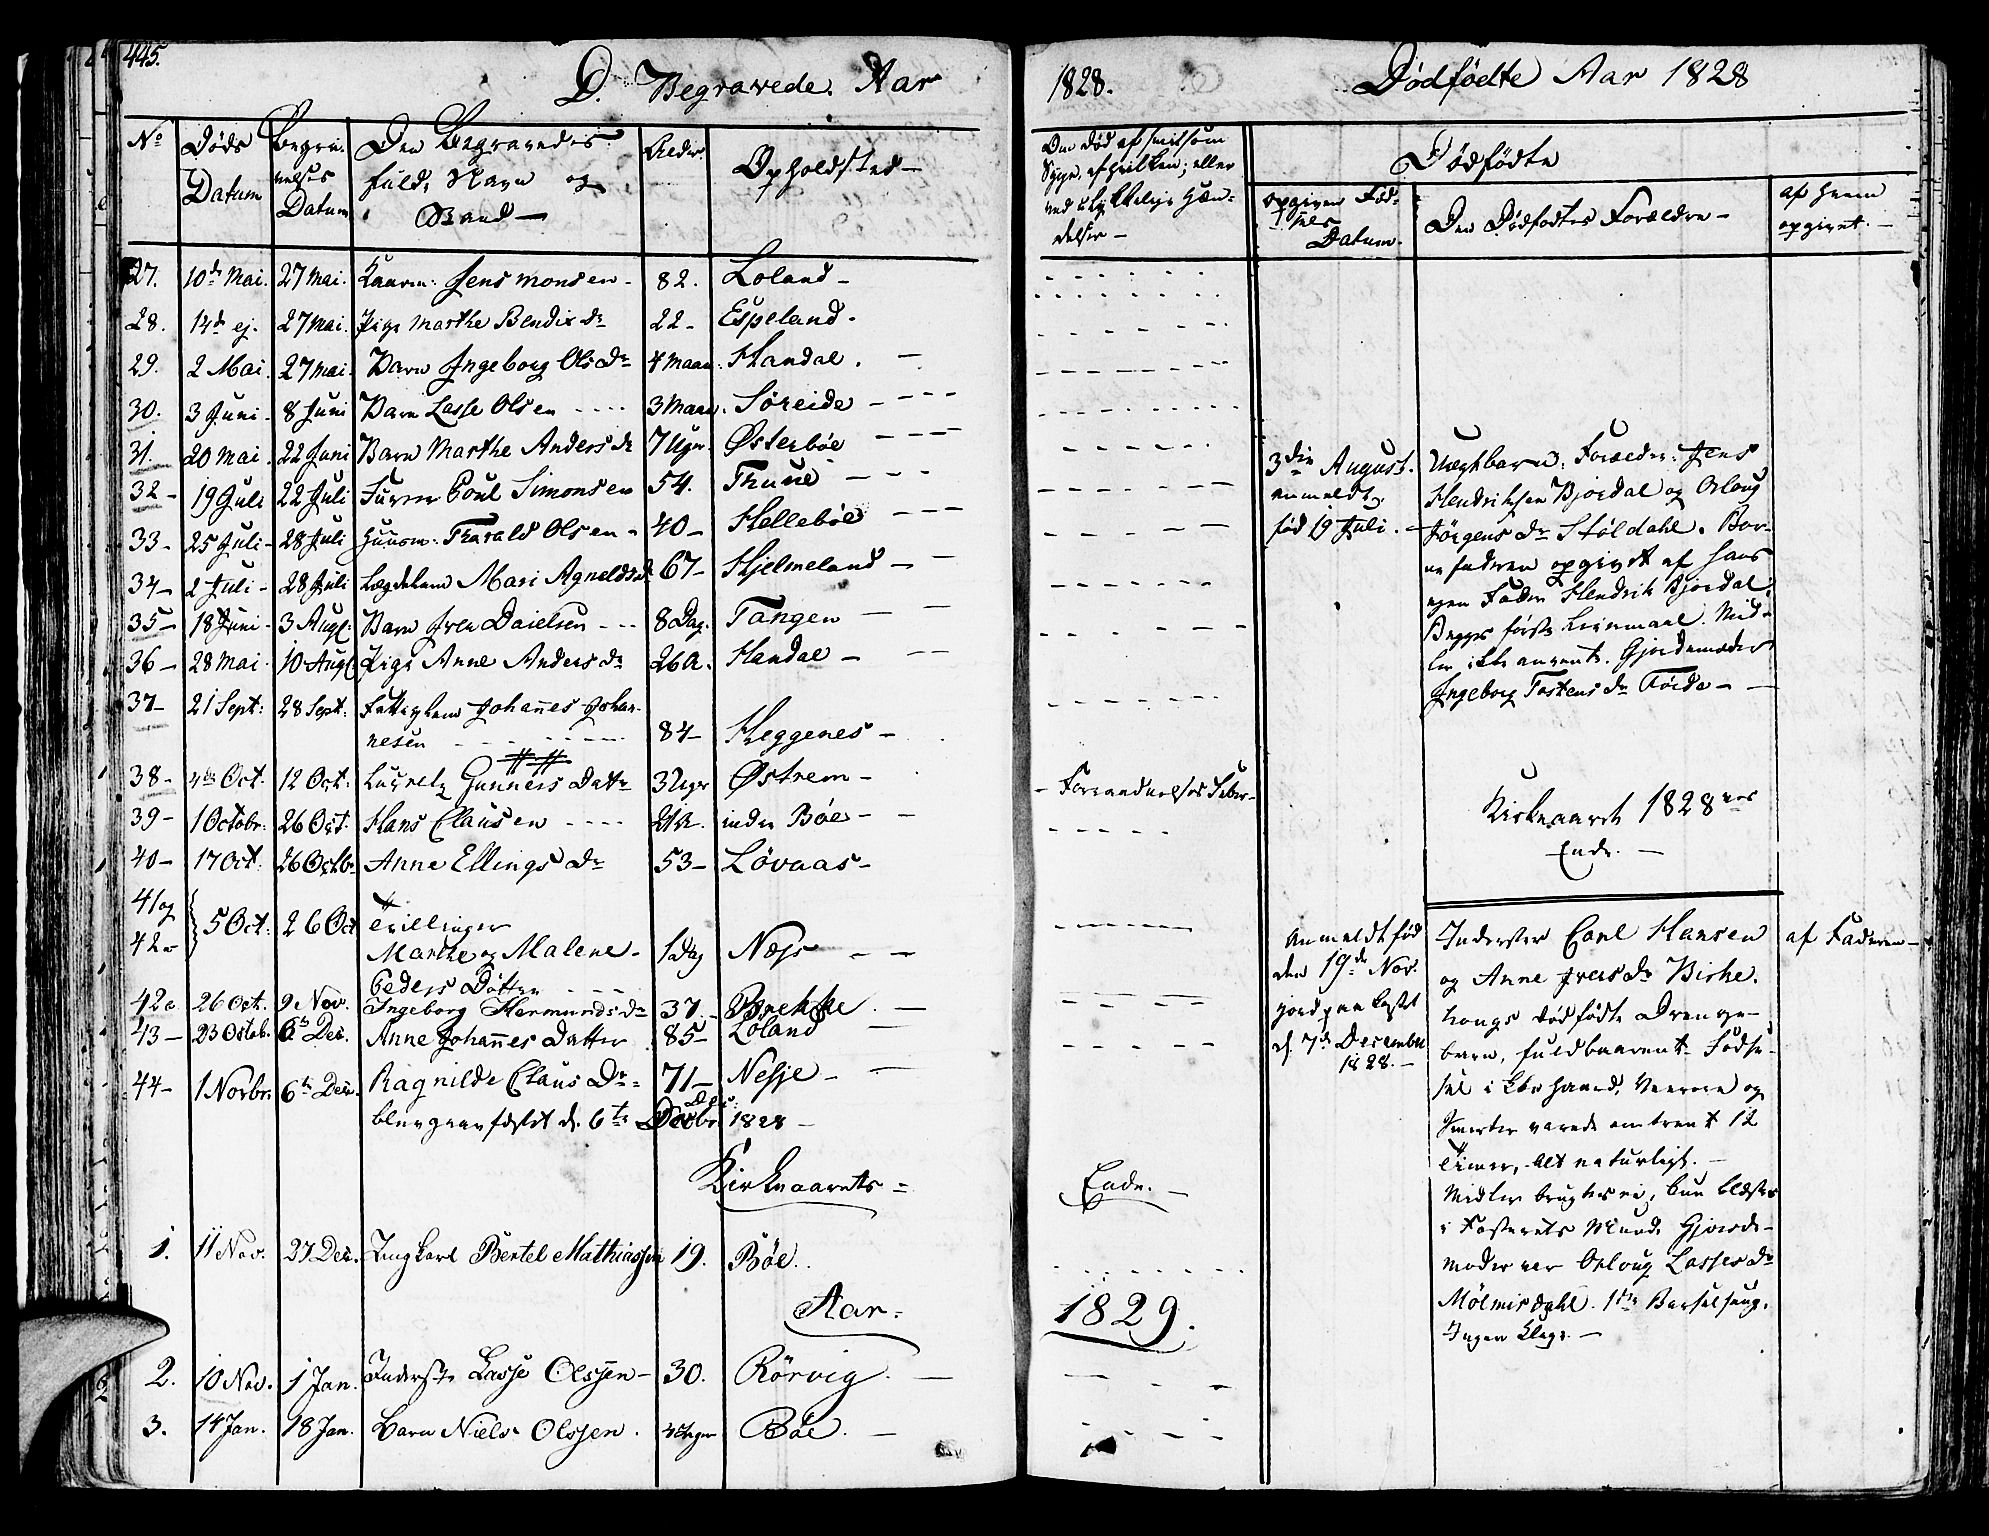 445.
D. Begravede. Aar
No Døds Datum Begravelses Datum Den Begravedes fulde Navn og Stand Alder Opholdsted
27. 10de Mai. 27 Mai. Kaarm: Jens Monsen 82. Loland
28. 14de ej. 27 Mai. Pige Marthe Bendix Dr 22 Espeland.
29. 2 Mai. 27 Mai. Barn Ingeborg Ols Dr 4 Maan: Handal.
30. 3 Juni 8 Juni Barn Lasse Olsen 3 Maan. Søreide
31. 20 Mai. 22 Juni Barn Marthe Anders Dr 7 Uger. Østerbøe
32 19 Juli 22 Juli Poul Simonsen 54. Thune
33 25 Juli 28 Juli Huusm: Tharald Olsen 40 Hellebøe
34 2 Juli 28 Juli Lægdslem Mari Agnelds Dr 67 Hjelmeland
35 18 Juni 3 Aug: Barn Iver Danielsen 8 Dag. Tangen
36 28 Mai. 10 Aug: Pige Anne Anders Dr 26 A. Handal
37 21 Sept: 28 Sept: Fattiglem Johannes Johan-
nesen 84 Heggenes
38 4de Oct. 12 Oct: Gunners Datr 3 Uger Østrem
39 1 Octobr: 26 Oct. Hans Clausen indre Bøe
40 17 Oct. 26 Octbr Anne Ellings Dr 53 Løvaas
41 og
42 5 Oct. 26 Oct Trillinger
Marthe og Malene 1 Dag Næss
Peders Døttre
42a 26 Oct. 9 Nov. Ingeborg Hermunds Dr 37. Brekke
43 23 Octob. 6te Dec. Anne Johannes Datter 85 Loland
44 1 Novbr. 6te Dec. Ragnilde Claus Dr 71 Nesje
blev gravfæstet d. 6te Decbr 1828
Kirkeaarets
1. 11 Nov. 27 Dec. Ungkarl Bertel Mathiassen 19. Bøe.
Aar
2. 10 Nov. 1 Jan. Inderste Lasse Olssen 30. Rörvig.
3. 14 Jan. 18 Jan. Barn Niels Olssen. Uger Bøe.
1828.
Om død af smitsom
Syge, af hvilken; eller
ved ulykkelige Hæn-
delser
Forraadnelses Feber
Ende.
1829.
Dødfødte Aar 1828
Dødfødte
opgiven Fød-
sels
Datum.
Den Dødfødtes Forældre
af hvem
opgivet.
3die August.
anmeldt,
fød 19 Juli.
Uægtbarn, Forældre: Jens
Hendriksen Bjordal og Orloug
Jörgens Dr Støldahl. Bar-
nefaderen opgivet af hans
egen Fader Hendrik Bjordal.
Begges første Leiermaal. Mid-
ler ikke anvendt. Gjordemoder
Ingeborg Tostens Dr Förde
Kirkeaaret 1828
Ende.
Anmeldt fød
den 19de Nov.
jordpaakastet
d. 7de December
1828.
Inderster Carl Hansen
og Anne Ivers Dr Birke-
hougs dødfødte Drenge-
barn, fuldbaarent. Födse-
Smerter varede omtrent 12
Timer, Alt naturligt.
Midler brugtes ei, kun blæstes
i Fosterets Mund. Gjorde-
moder var Orloug Lasses Dr
Mølmisdahl. 1ste Barselseng.
Ingen Klage.
af Faderen